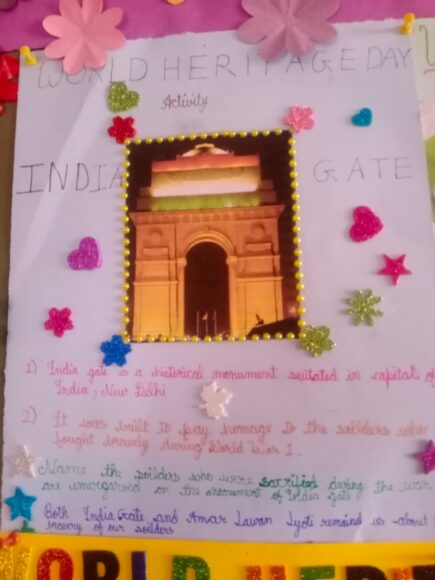 WORLD HERITAGE DAY
Activity
INDIA GATE
1) India gate is a historical monument suitated in capital of
India, New Delhi
2) It was built to pay homage to the soilders who
fought bravely during World War 1.
Name the soilders who were sacrified during the war
are on the monument of India gate
Both India Gate and Amar Jawan Jyoti remaind us about
bravery of our soilders
WORLD HERIT